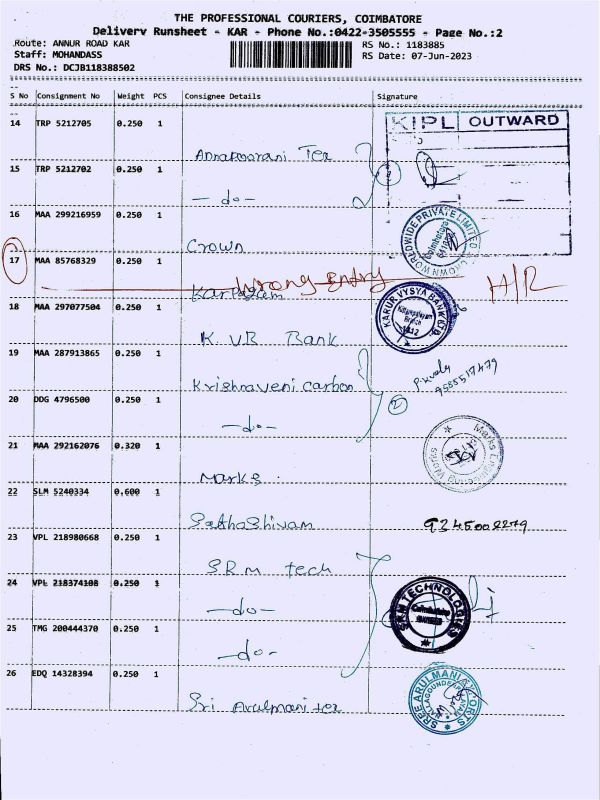 THE PROFESSIONAL COURIERS, COIMBATORE
Delivery Runsheet - KAR - Phone No.:0422-3505555 - Page No.:2
Route: ANNUR ROAD KAR
RS No.: 1183885
Staff: MOHANDASS
RS Date: 07-Jun-2023
DRS No.: DCJB118388502
S No Consignment No Weight PCS Consignee Details Signature
14 TRP 5212705 0.250 1
KIPL OUTWARD
Annapoorani Tex
15 TRP 5212702 0.250 1
2
-do-
16 MAA 299216959 0.250 1
CROWN WORLDWIDE PRIVATE LIMITED
Coimbatore
Crown
17 MAA 85768329 0.250 1
Wrong Entry
H/R
Karpagam
18 MAA 297077504 0.250 1
KARUR VYSYA BANK LTD
Branch
K.VB Bank
19 MAA 287913865 0.250 1
Krishnaveni Carbon
9585517479
20 DDG 4796500 0.250 1
2
-do-
21 MAA 292162076 0.320 1
Marks
22 SLM 5240334 0.600 1
Sathashivam
9345002279
23 VPL 218980668 0.250 1
SRM tech
24 VPL 218374108 0.250 1
SRM TECHNOLOGIES
Coimbatore
-do-
25 TMG 200444370 0.250 1
-do-
26 EDQ 14328394 0.250 1
SREE ARULMANI EXPORTS
Sri Arulmani tex